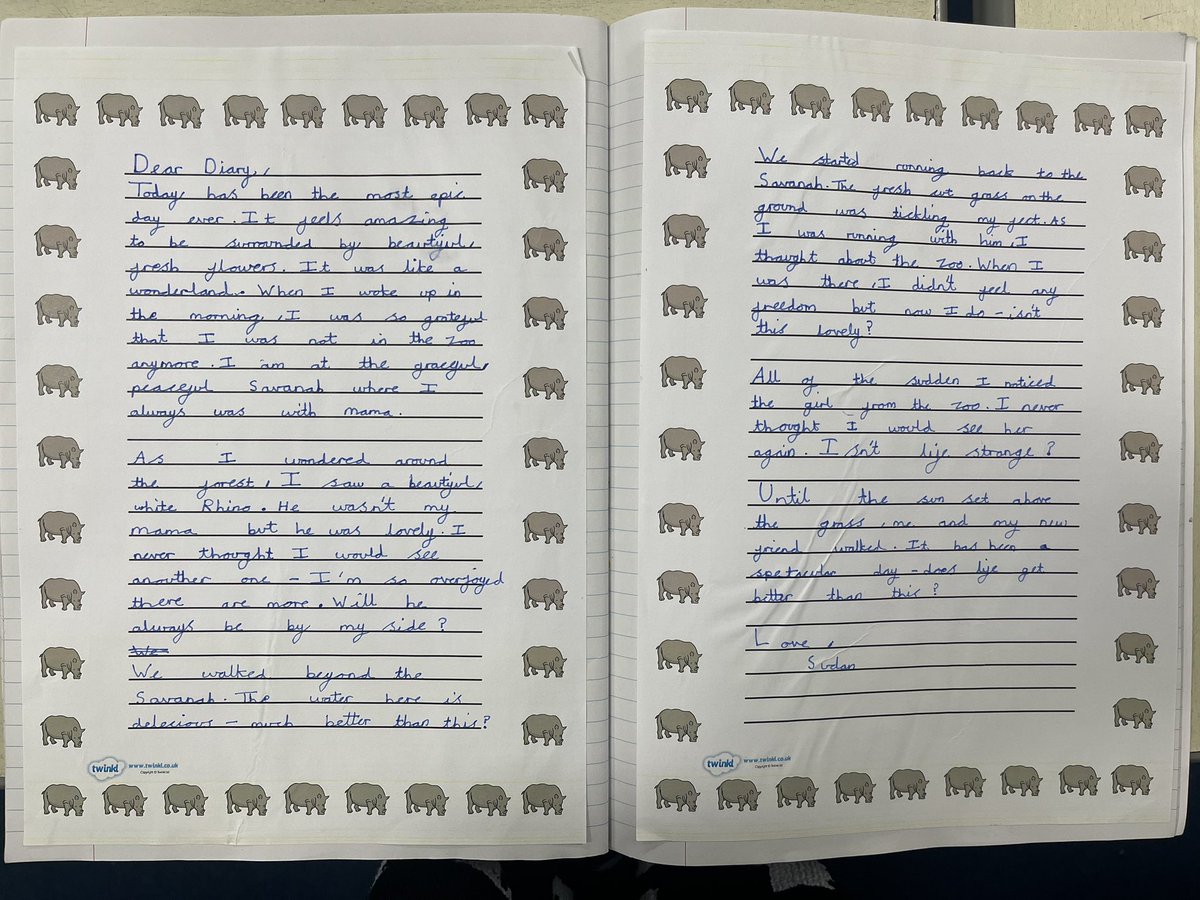 Dear Diary,
Today has been the most epic
day ever. It feels amazing
to be surrounded by beautiful,
fresh flowers. It was like a
wonderland. When I woke up in
the morning, I was so grateful
that I was not in the zoo
anymore. I am at the graceful,
peaceful Savanah where I
always was with mama.
As I wondered around
the forest, I saw a beautiful,
white Rhino. He wasn't my
mama but he was lovely. I
never thought I would see
anouther one - I'm so overjoyed
there are more. Will he
always be by my side?
We
We walked beyond the
Savanah. The water here is
delecious - much better than this?
twinkl www.twinkl.co.uk
We started running back to the
Savanah. The fresh cut grass on the
ground was tickling my feet. As
I was running with him, I
thought about the zoo. When I
was there, I didn't feel any
freedom but now I do - isn't
this lovely?
All of the sudden I noticed
the girl from the zoo. I never
thought I would see her
again. Isn't life strange?
Until the sun set above
the grass, me and my new
friend walked. It has been a
spetacular day - does life get
better than this?
Love,
Sudan
twinkl www.twinkl.co.uk